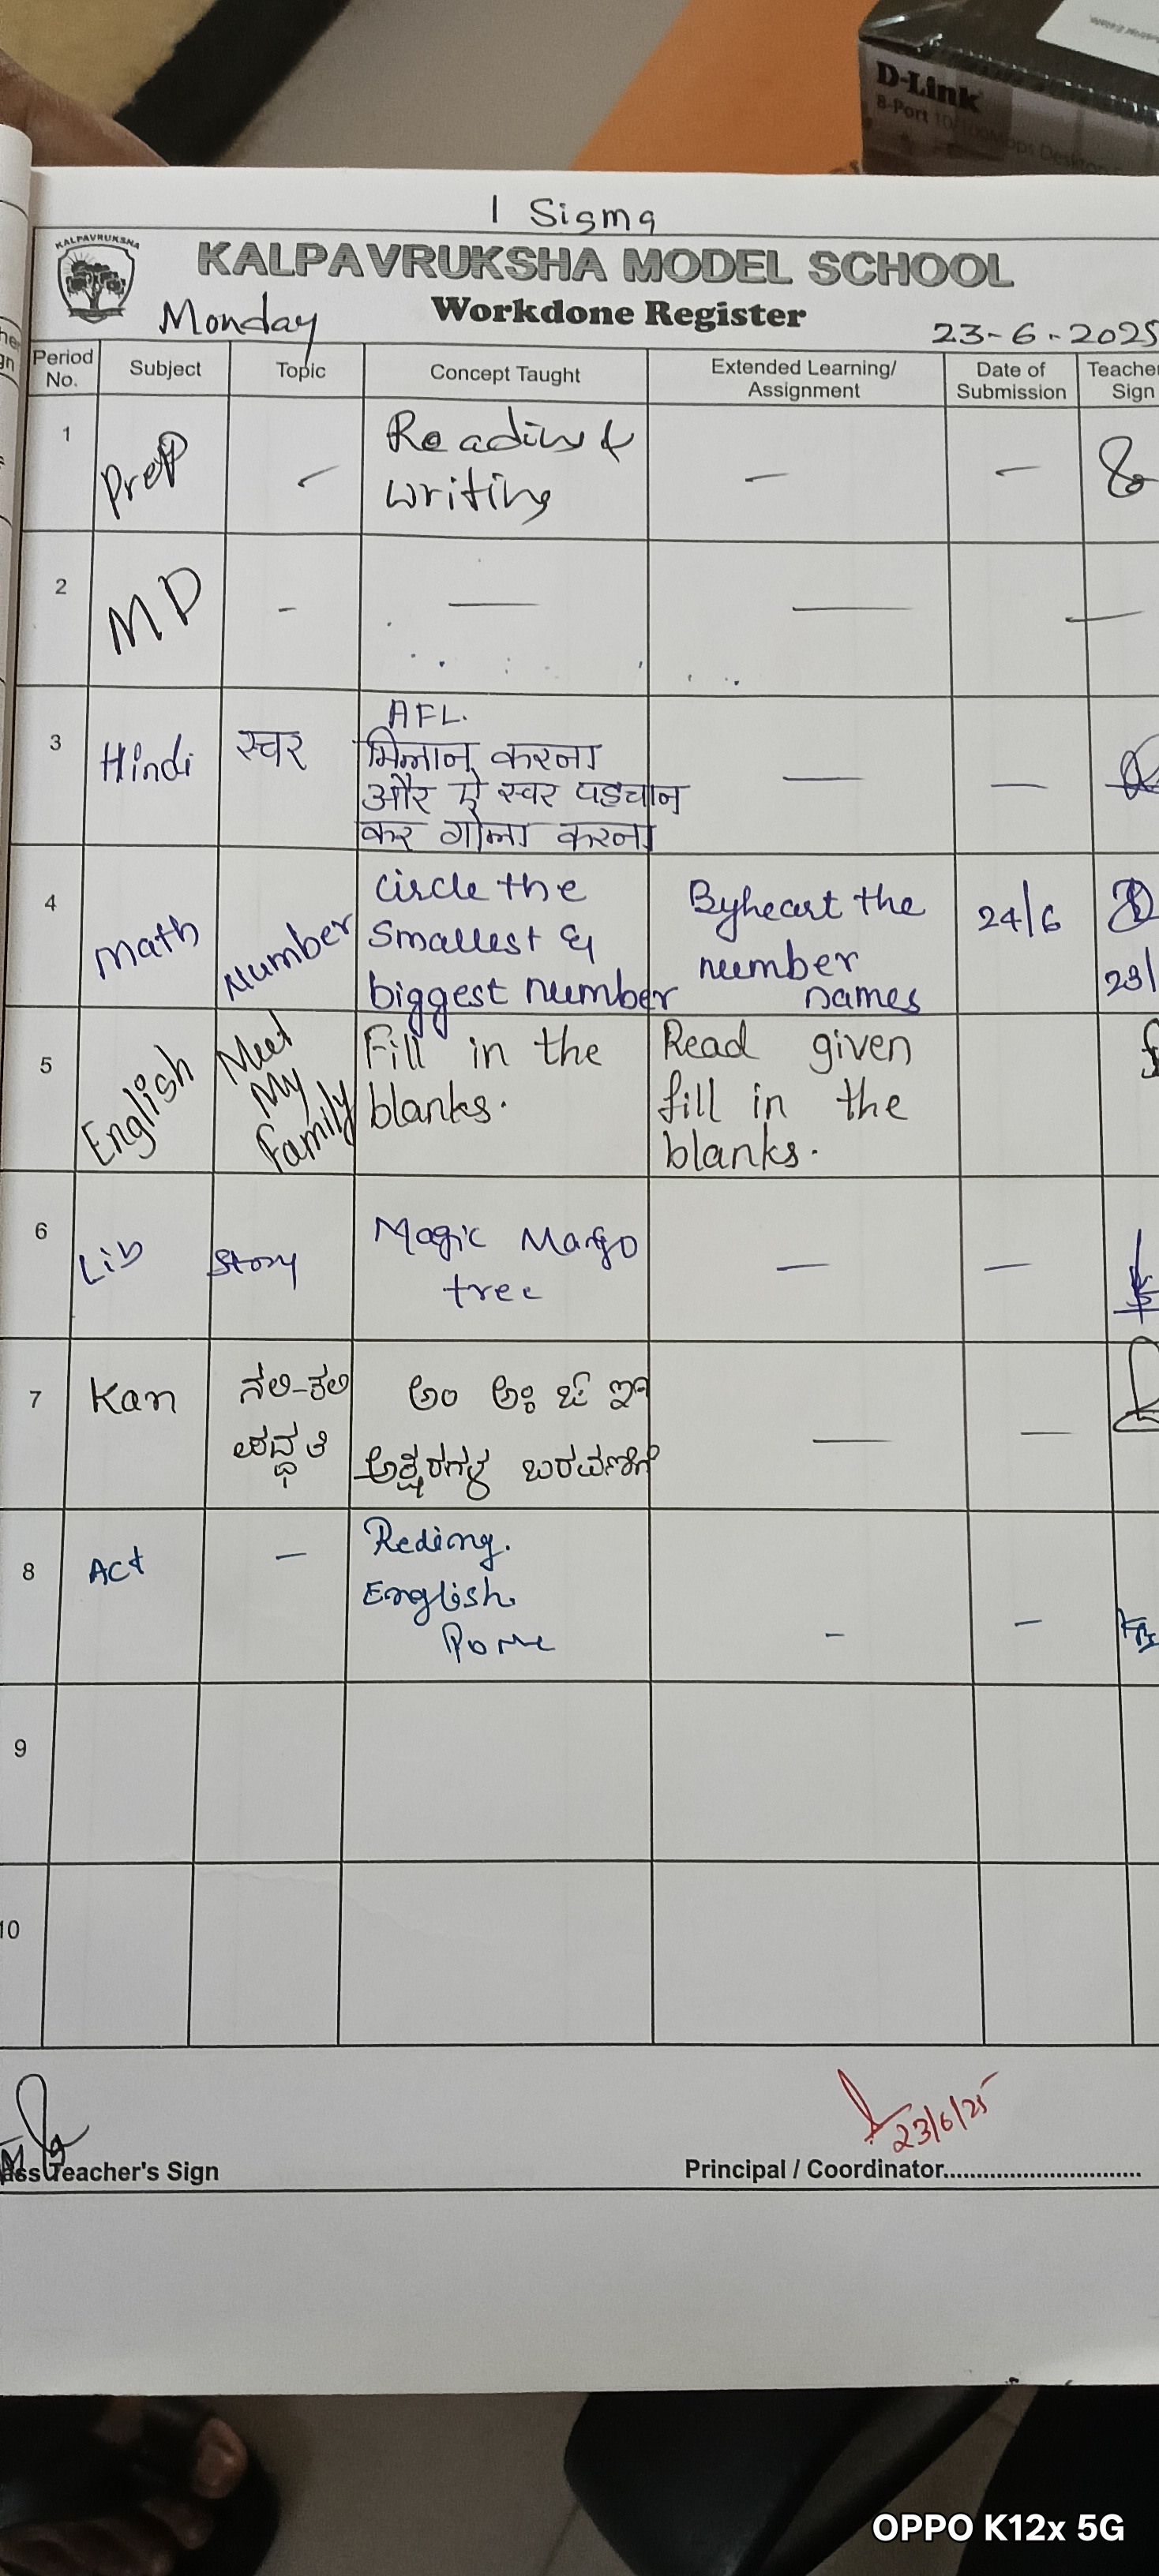 D-Link
8-Port 10/100Mbps Desktop
1 Sigma
KALPAVRUKSHA
KALPAVRUKSHA MODEL SCHOOL
Workdone Register
Monday
23-6-2025
Period No. Subject Topic Concept Taught Extended Learning/ Assignment Date of Submission Teacher Sign
1 PreP - Reading & writing - -
2 MD - - - -
3 Hindi स्वर AFL. मिलान करना और ऐ स्वर पहचान कर गोला करना - -
4 Math Number circle the smallest & biggest number Byheart the number names 24/6 23/
5 English Meet My Family Fill in the blanks. Read given fill in the blanks.
6 Lib Story Magic Mango tree - -
7 Kan ನಲಿ-ಕಲಿ ಪದ್ಧತಿ ಅಂ ಅಃ ಅಕ್ಷರಗಳ ಬರವಣಿಗೆ - -
8 Act - Reding. English Pome - -
9
10
23/6/25
ass Teacher's Sign
Principal / Coordinator..............................
OPPO K12x 5G